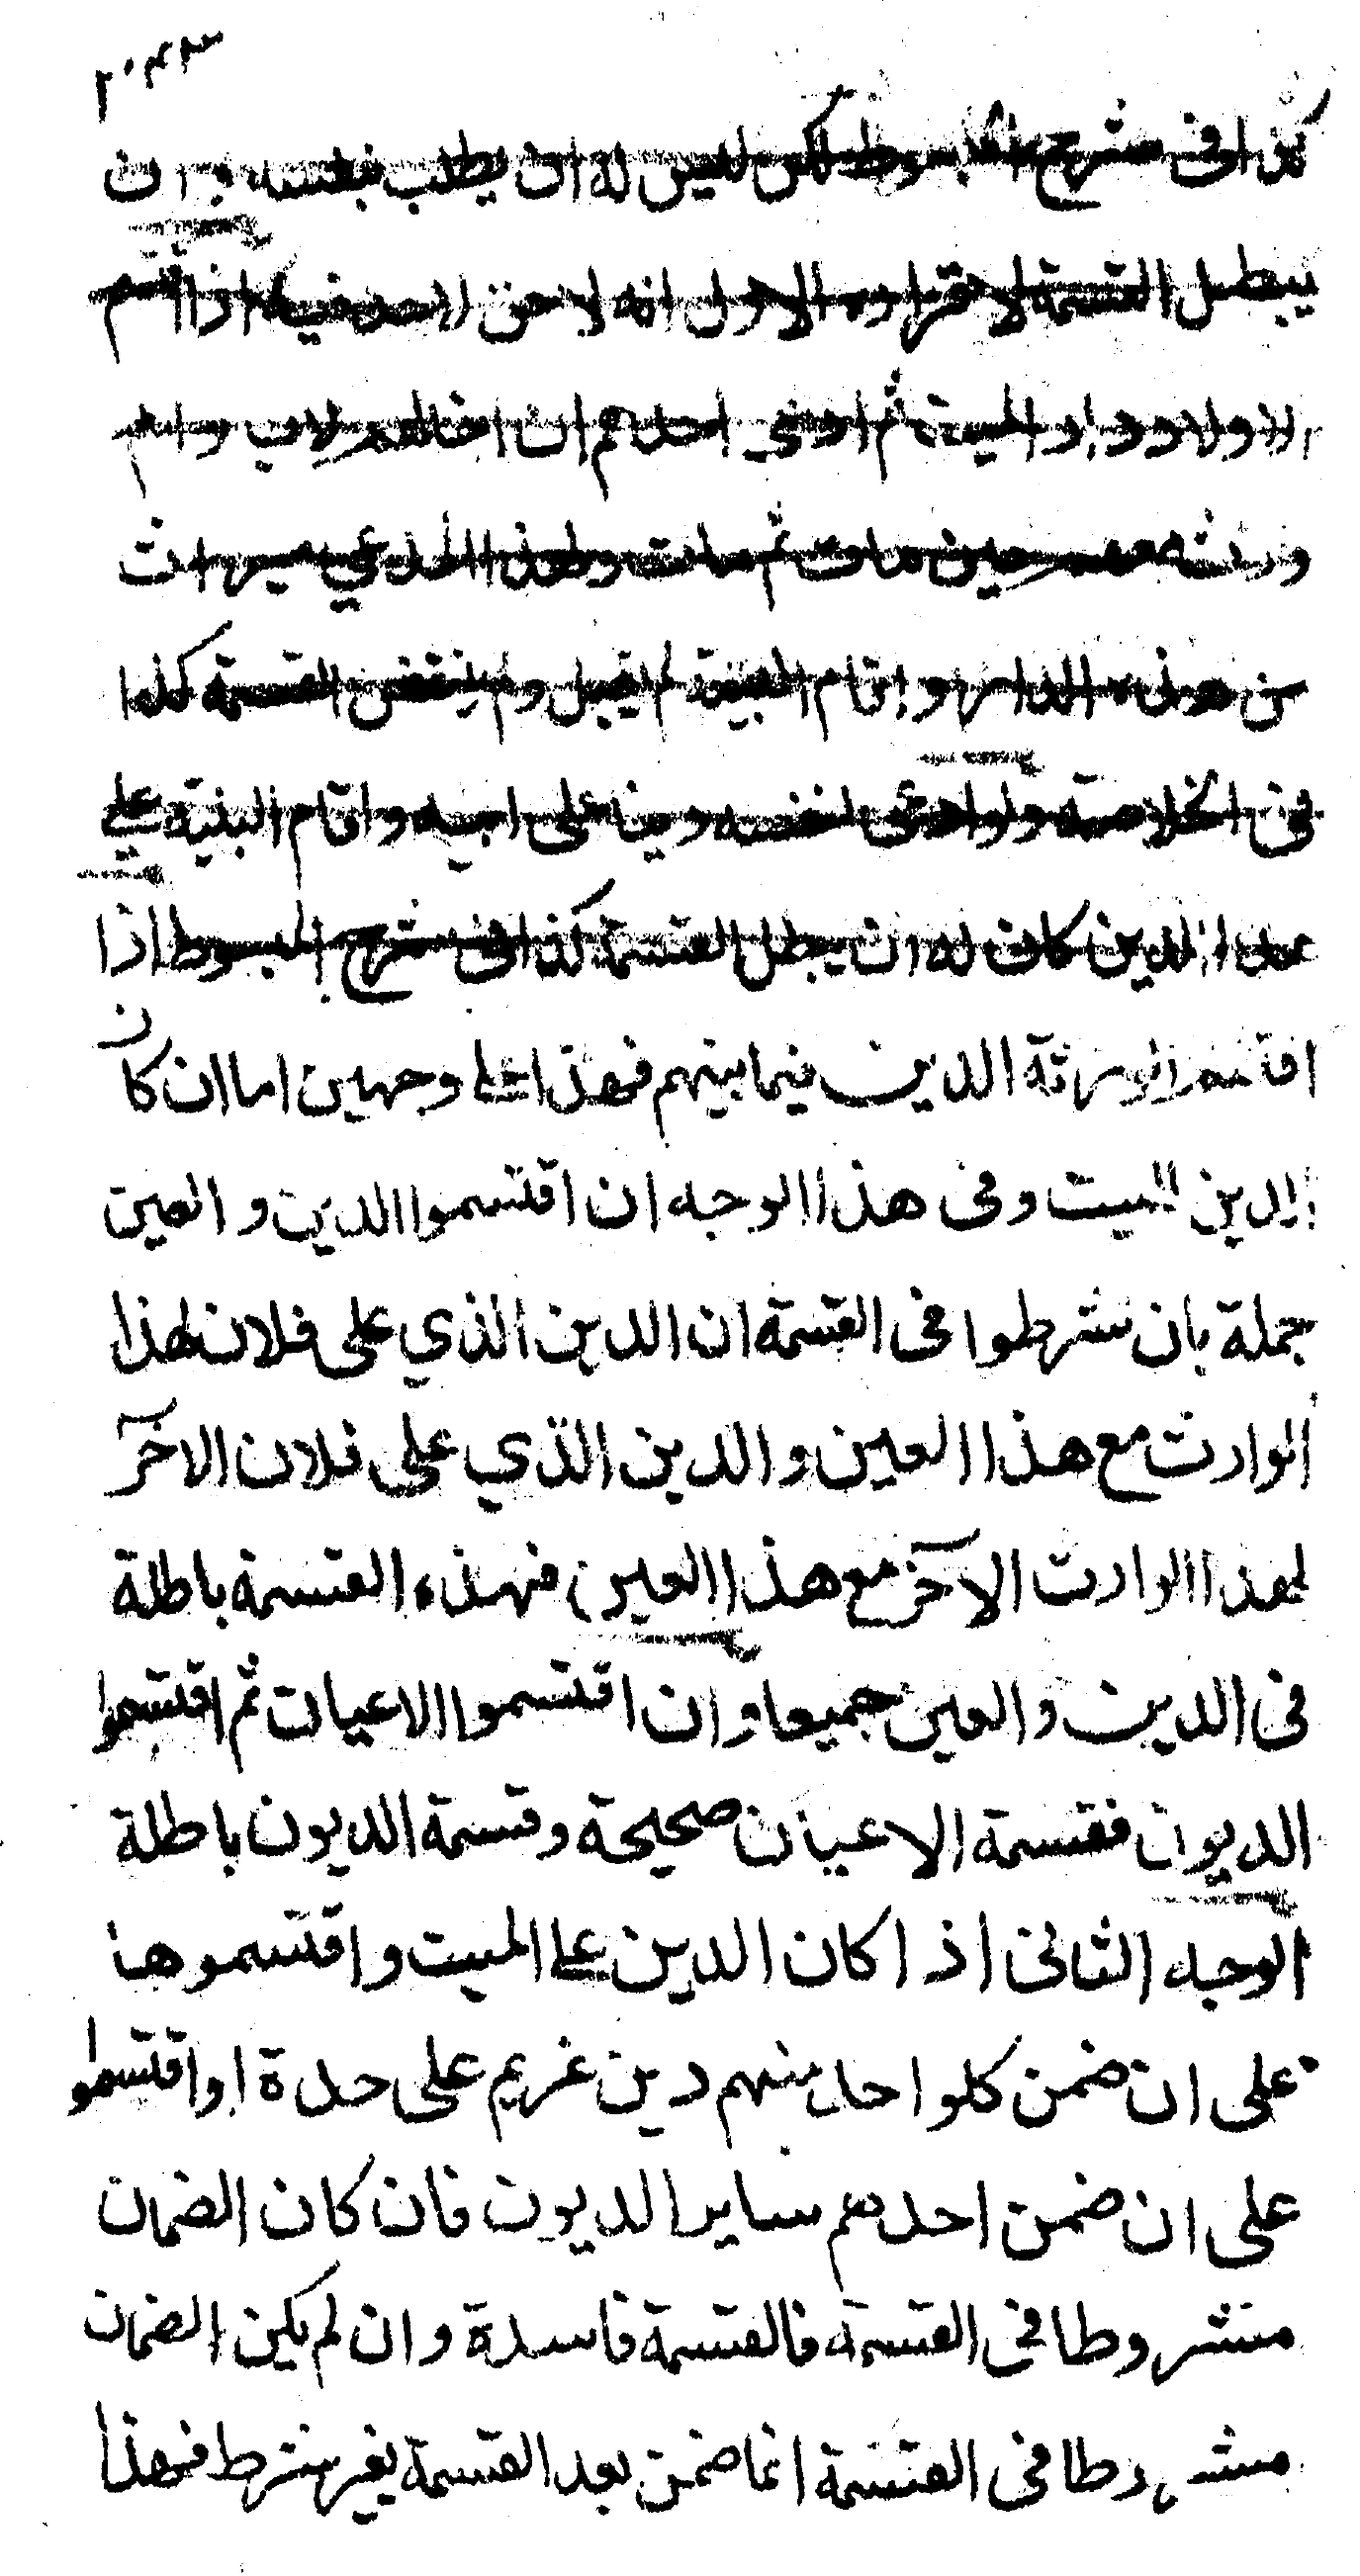 كذا فى شرح المبسوط لكن ليس له ان يطلب نفسه و ان
يبطل القسمة لاقراره الاول انه لا حق لاحد فيها اذا اقتسم
الاولاد دار الميت ثم ادعى احدهم ان اخا لهم لاب وام
ورثه معهم حين مات ثم مات ولهذا المدعي ميراث
من هذه الدار و اقام البينة لم يقبل ولم ينقض القسمة كذا
فى الخلاصة ولو ادعى لنفسه دينا على ابيه واقام البنية على
هذا الدين كان له ان يبطل القسمة كذا فى شرح المبسوط اذا
اقتسم الورثة الدين فيما بينهم فهذا على وجهين اما ان كان
الدين للميت وفى هذا الوجه ان اقتسموا الدين والعين
جملة بان شرطوا فى القسمة ان الدين الذي على فلان لهذا
الوارث مع هذا العين والدين الذي على فلان الاخر
لهذا الوارث الآخر مع هذا العين فهذه القسمة باطلة
فى الدين والعين جميعا وان اقتسموا الاعيان ثم اقتسموا
الديون فقسمة الاعيان صحيحة وقسمة الديون باطلة
الوجه الثانى اذا كان الدين على الميت واقتسموها
على ان ضمن كلواحد منهم دين غريم على حدة او اقتسموا
على ان ضمن احدهم ساير الديون فان كان الضمان
مشروطا فى القسمة فالقسمة فاسدة وان لم يكن الضمان
مشروطا فى القسمة انما ضمن بعد القسمة بغير شرط فهذا